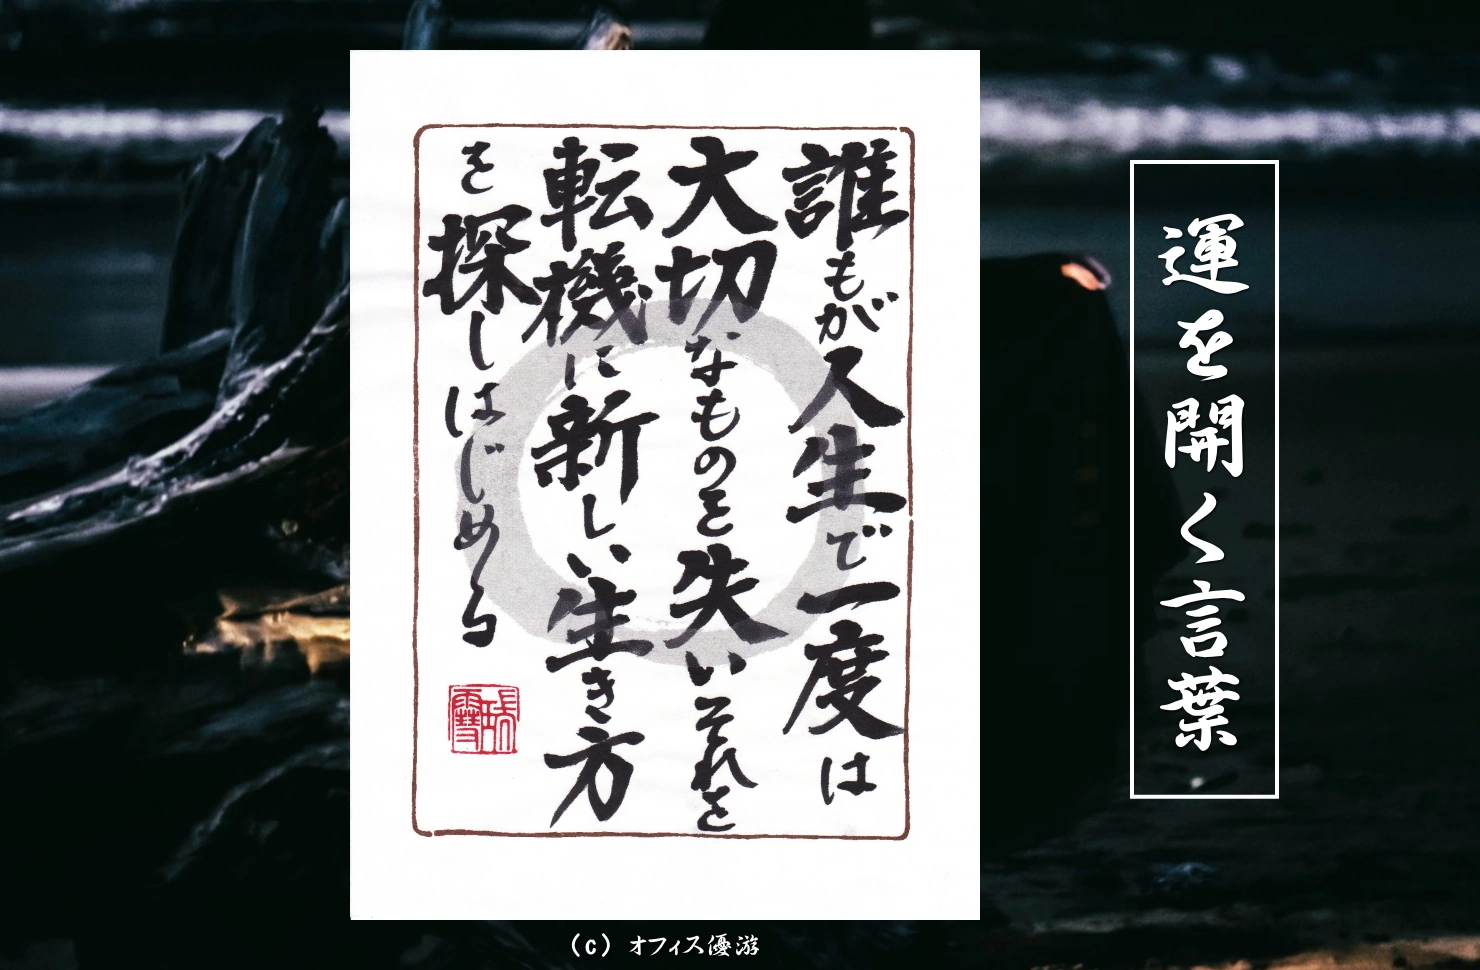 運を開く言葉
誰もが人生で一度は
大切なものを失いそれを
転機に新しい生き方
を探しはじめる
(c) オフィス優游